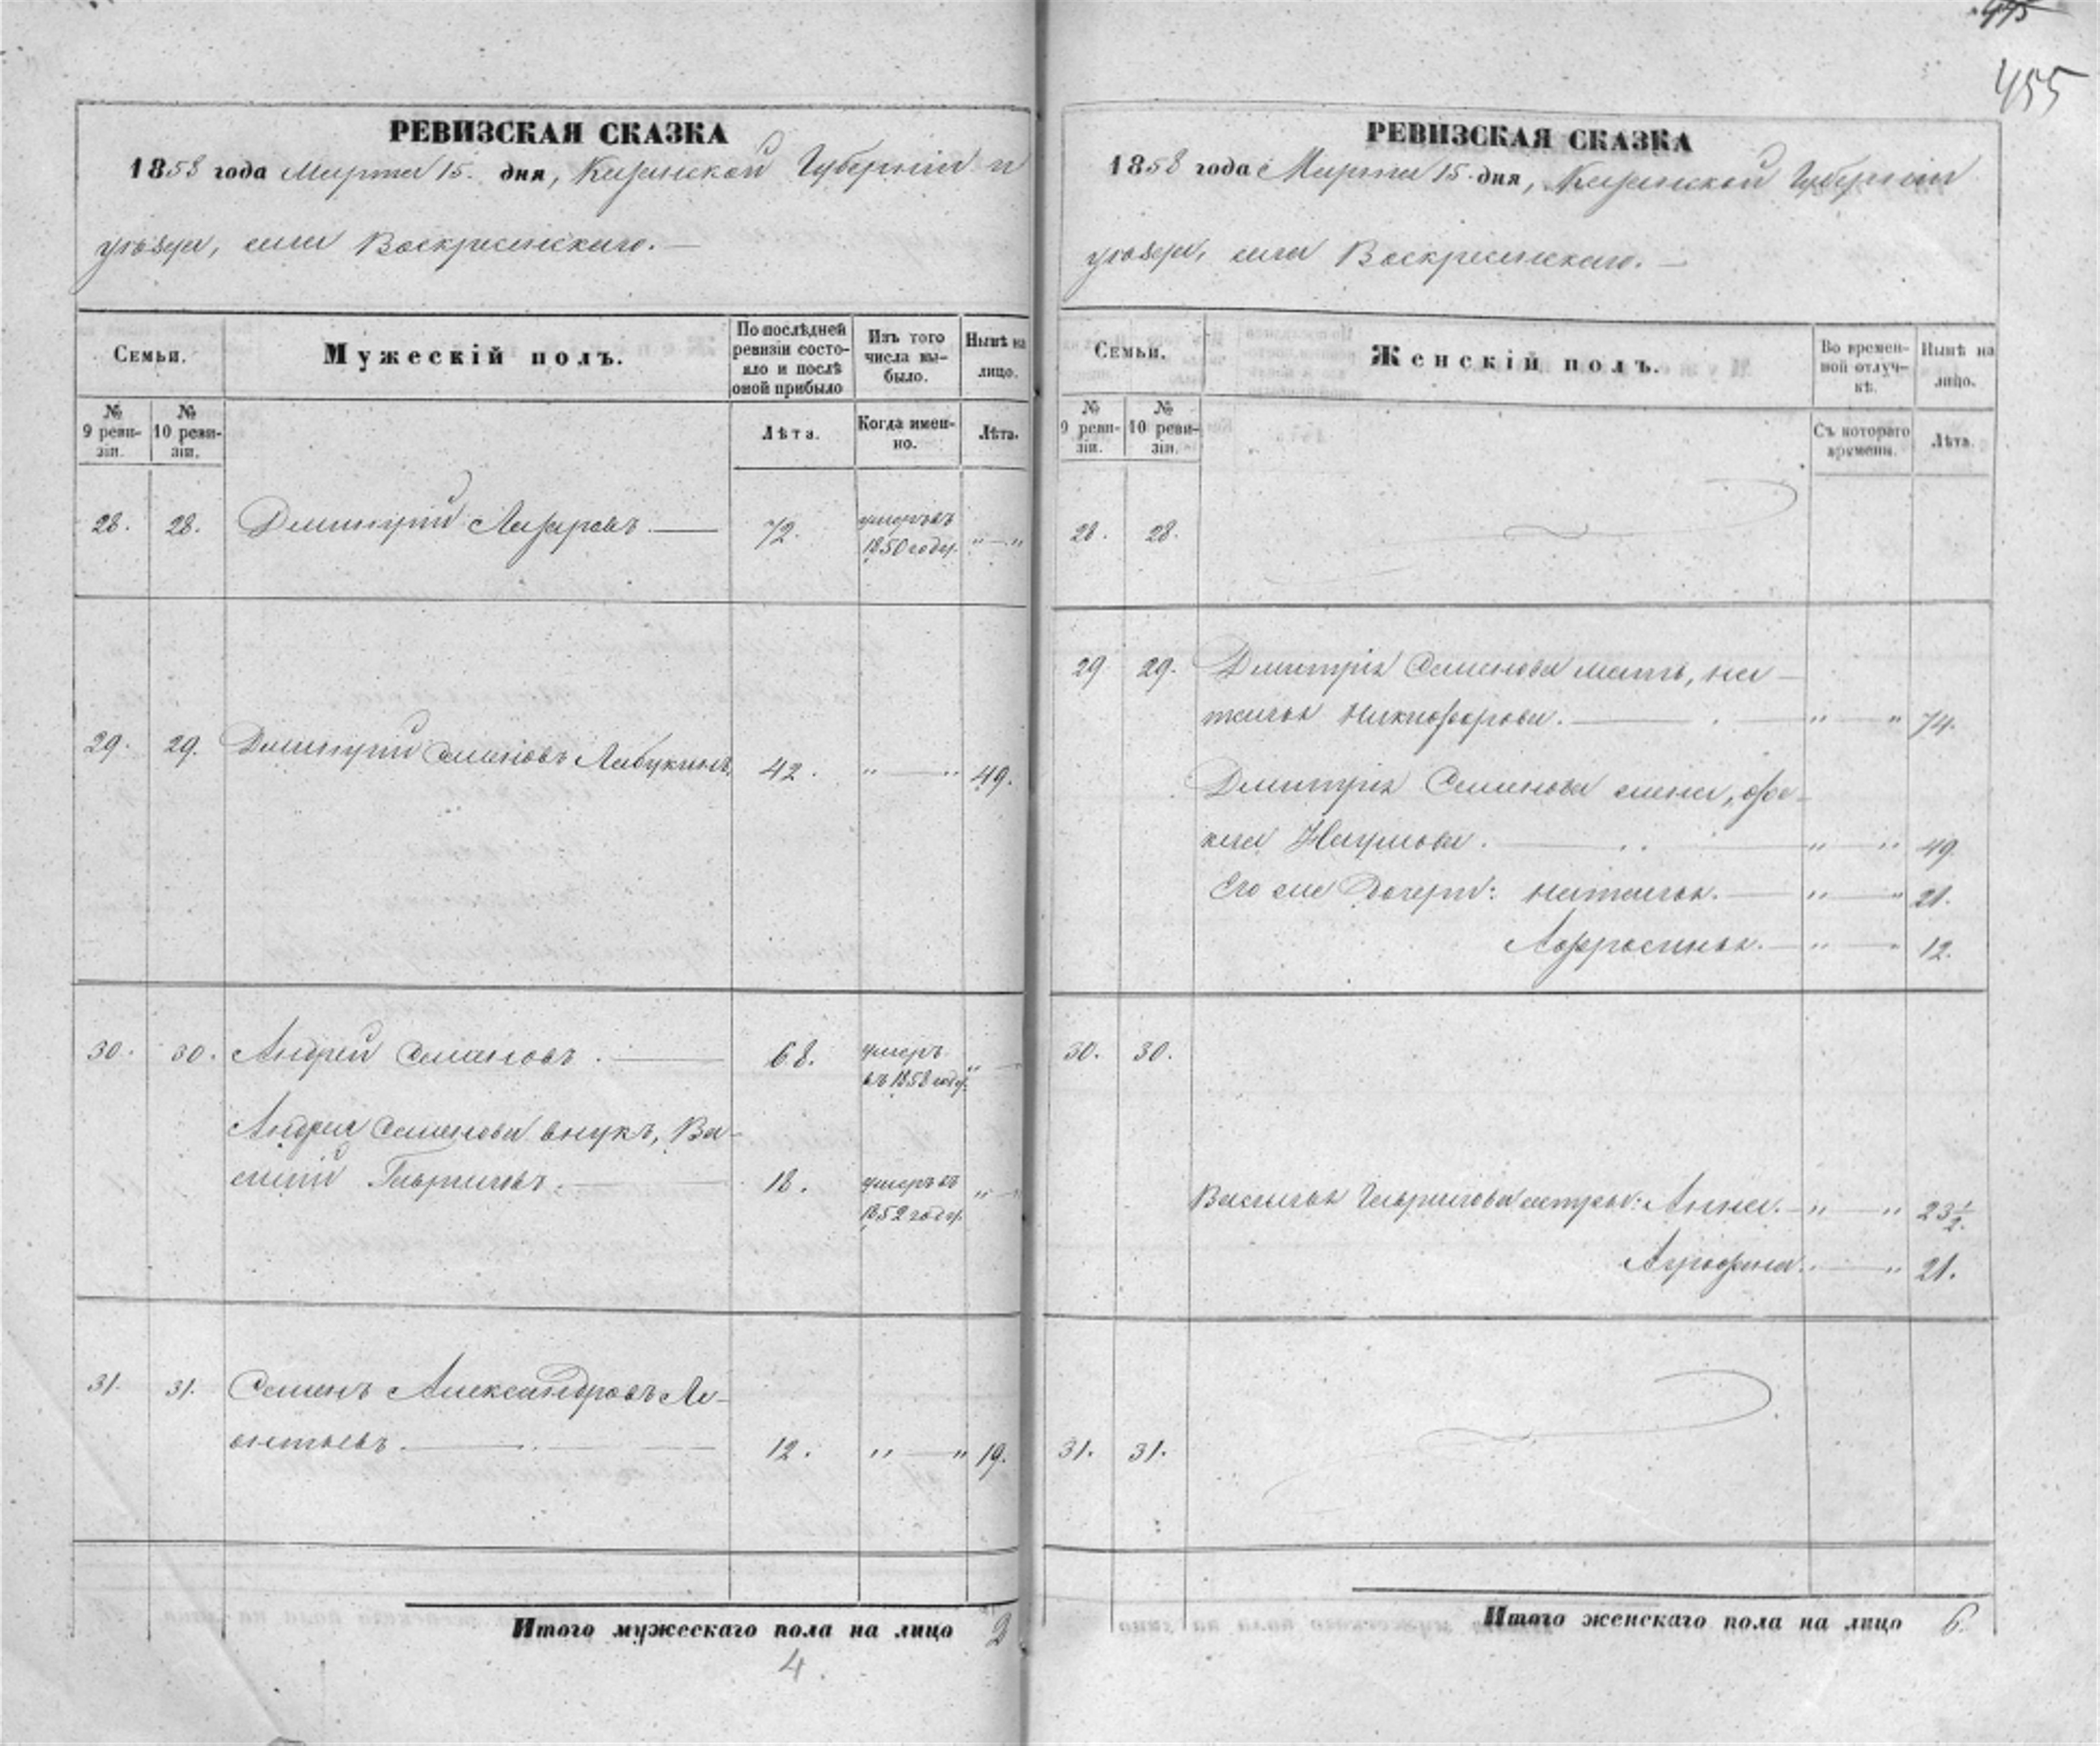 445
455
РЕВИЗСКАЯ СКАЗКА
1858 года Марта 15. дня, Казанской Губерніи и
уѣзда, села Воскресенскаго. —
Семьи.
Мужескій полъ.
По послѣдней ревизіи состояло и послѣ оной прибыло
Изъ того числа выбыло.
Нынѣ на лицо.
№ 9 ревизіи.
№ 10 ревизіи.
Лѣта.
Когда именно.
Лѣта.
28. 28. Дмитрій Лазаревъ. — 72. умеръ въ
1850 году. „—„
29. 29. Дмитрій Семеновъ Лабукинъ, 42. „—„ 49.
30. 30. Андрей Семеновъ. — 68. умеръ
въ 1858 году. „—
Андрея Семенова внукъ, Ва-
силій Гавриловъ. — 18. умеръ въ „—
1852 году.
31. 31. Семенъ Александровъ Ле-
онтьевъ. — 12. „—„ 19.
Итого мужескаго пола на лицо 2
4.
РЕВИЗСКАЯ СКАЗКА
1858 года Марта 15. дня, Казанской Губерніи
уѣзда, села Воскресенскаго. —
Семьи.
Женскій полъ.
Во временной отлучкѣ.
Нынѣ на лицо.
№ 9 ревизіи.
№ 10 ревизіи.
Съ котораго времени.
Лѣта.
28. 28.
29 29. Дмитрія Семенова мать, На-
талья Никифорова. — „—„ 74.
Дмитрія Семенова жена, Фе-
кла Наумова. — „—„ 49.
Его же дочери: Наталья. — „—„ 21.
Афросинья. — „—„ 12.
30. 30.
Василья Гаврилова сестры: Анна. — „—„ 23½.
Агрофена. —„ 21.
31. 31.
Итого женскаго пола на лицо 6.